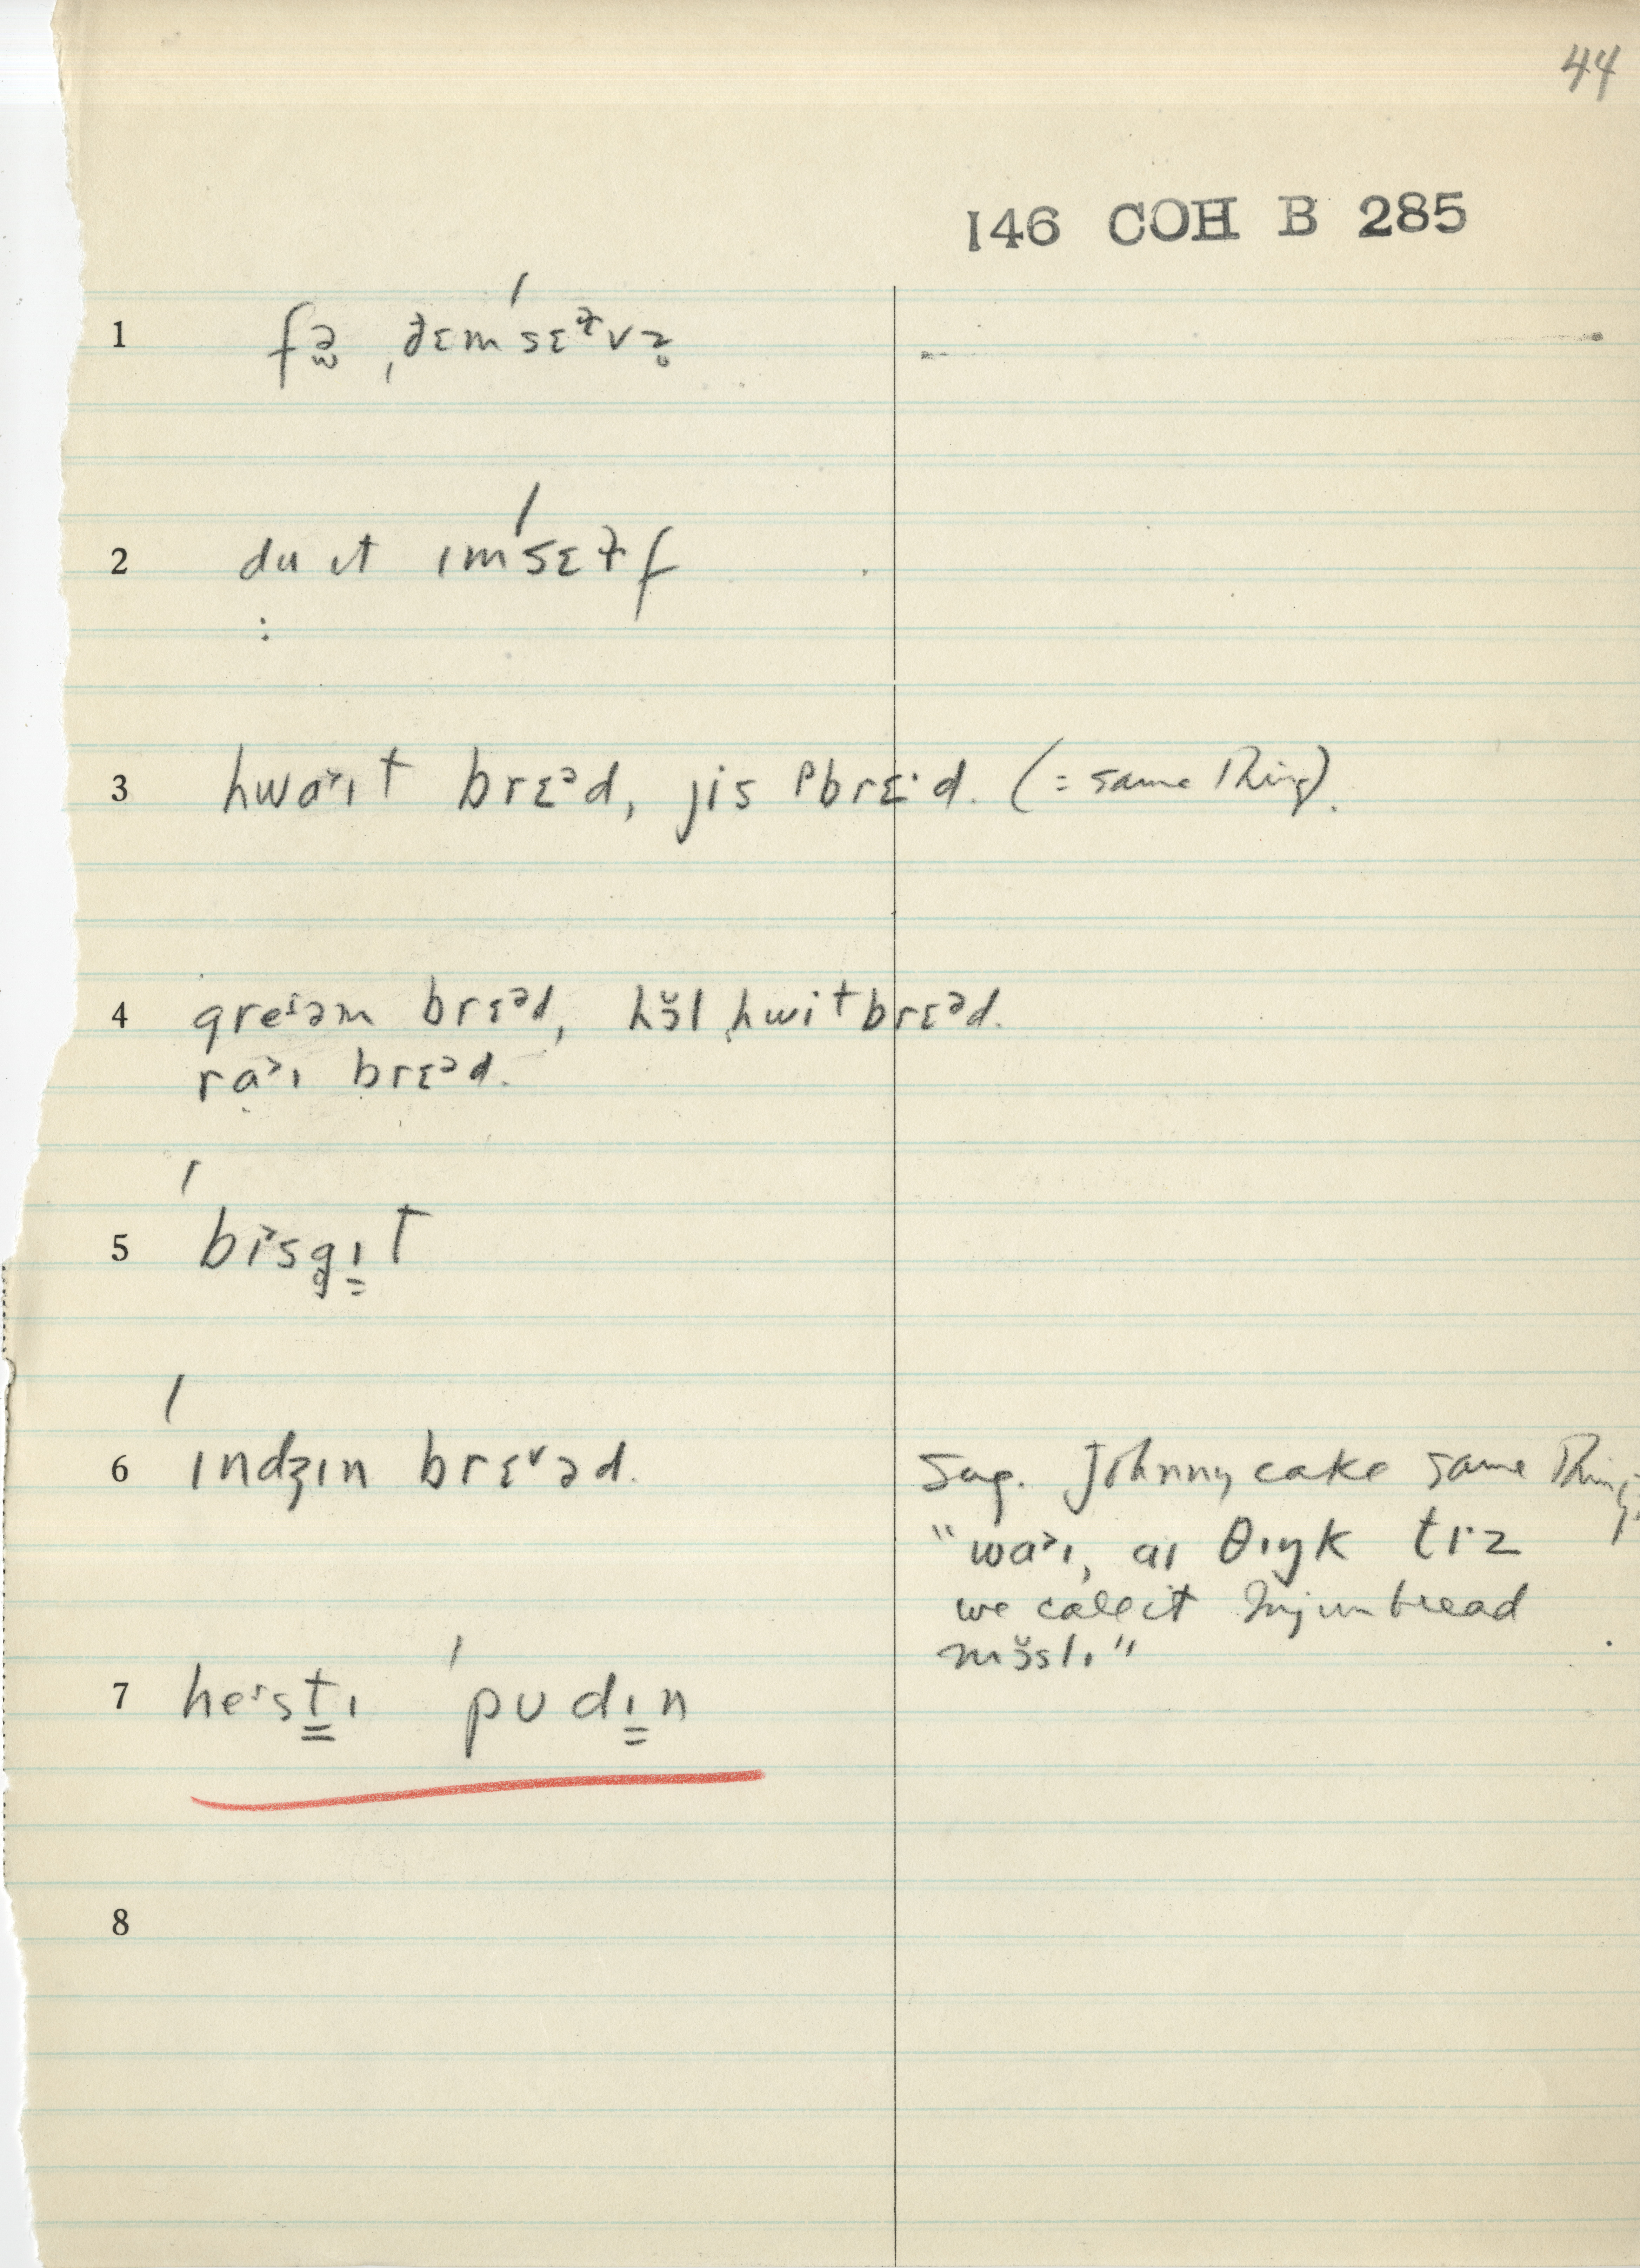 44
146 COH B 285
1 fə̯ ˌðɛm ˈsɛɫvz̥
2 du ɪt ɪmˈsɛɫf
:
3 hwa˃ɪt brɛᵊd, jis ᵖbrɛ·d. (= same thing).
4 greⁱəm brɛᵊd, hɔ̆l hwitbrɛᵊd.
ra˃ɪ brɛᵊd.
5 ˈbi˃sg̥ɪ̳t
6 ˈɪndʒɪn brɛ˅əd. Sug. Johnny cake same thing.
"wa˃ɪ, aɪ θɪŋk tɪ·z
we call it Injun bread
7 heⁱst̳ɪ ˈpʊdɪ̳n mɔ̆slɪ"
8